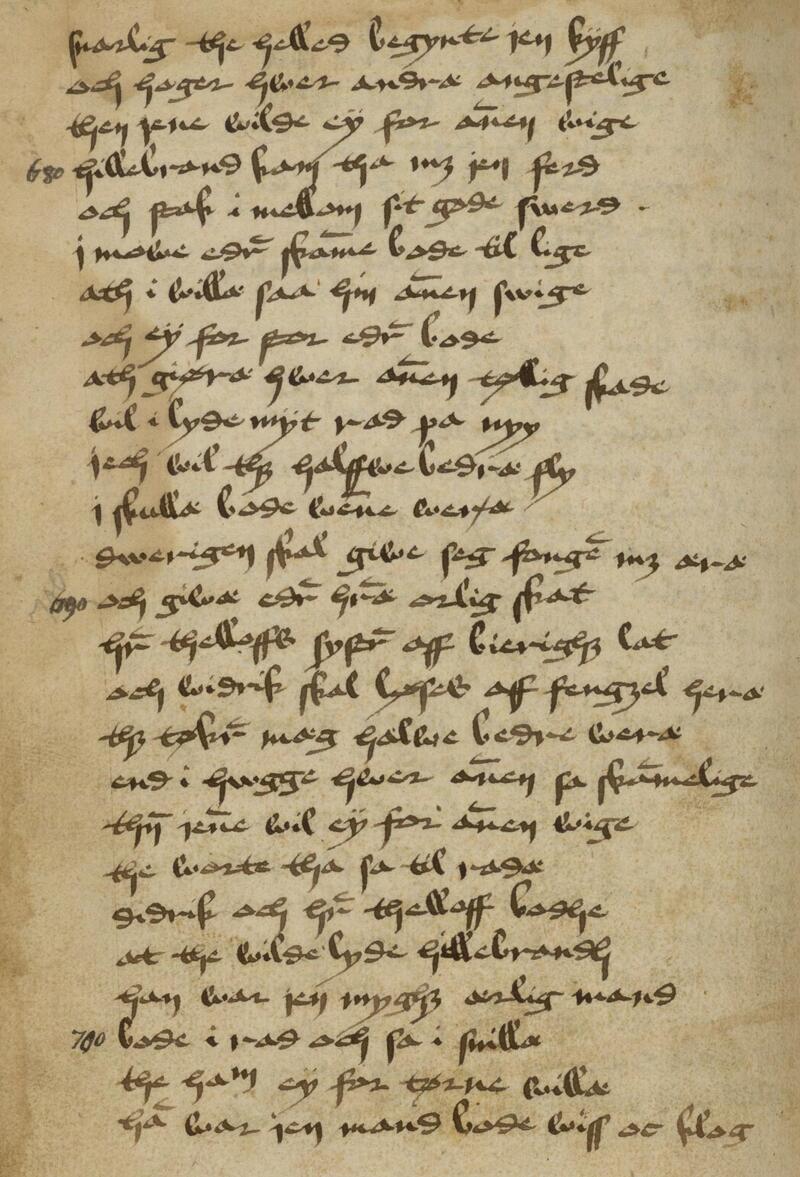 snarlig the helled begynte jen kyff
och hoger hwer andræ angestelige
then jene wilde ey for an̄en wige
680 hillebrand kam tha mꝫ jen ferd
och stak i mellom sit gode swerd .
j mowe edr̄ skam̄e bode til lige
ath i willæ saa hin an̄en swige
och ey for stor edr̄ bode
ath giøræ hwer an̄en tøllig skade
wil i lyde myt rad pa nyy
jech wil thꝫ halffwe bedræ fly
j skullæ bode wen̄e weræ
dwerigen skal giwe seg fongē mꝫ æræ
690 och giwæ edr̄ hr̄æ orlig skat
hr̄ thelloffs systr̄ aff bierighꝫ lat
och widrik skal løses aff fengzel heræ
thꝫ tøkr̄ mæg halwe bedre weræ
end i hwgge hwer an̄en sa skam̄elige
thn̄ jen̄e wil ey for an̄en wige
the worte tha sa til radæ
didrik och hr̄ thelloff bodhe
at the wilde lyde hillebrandh
han war jen myghꝫ ærlig mand
700 bode i rad och sa i snillæ
the ham ey for tørne willæ
hā war jen mand bode wiss oc klog